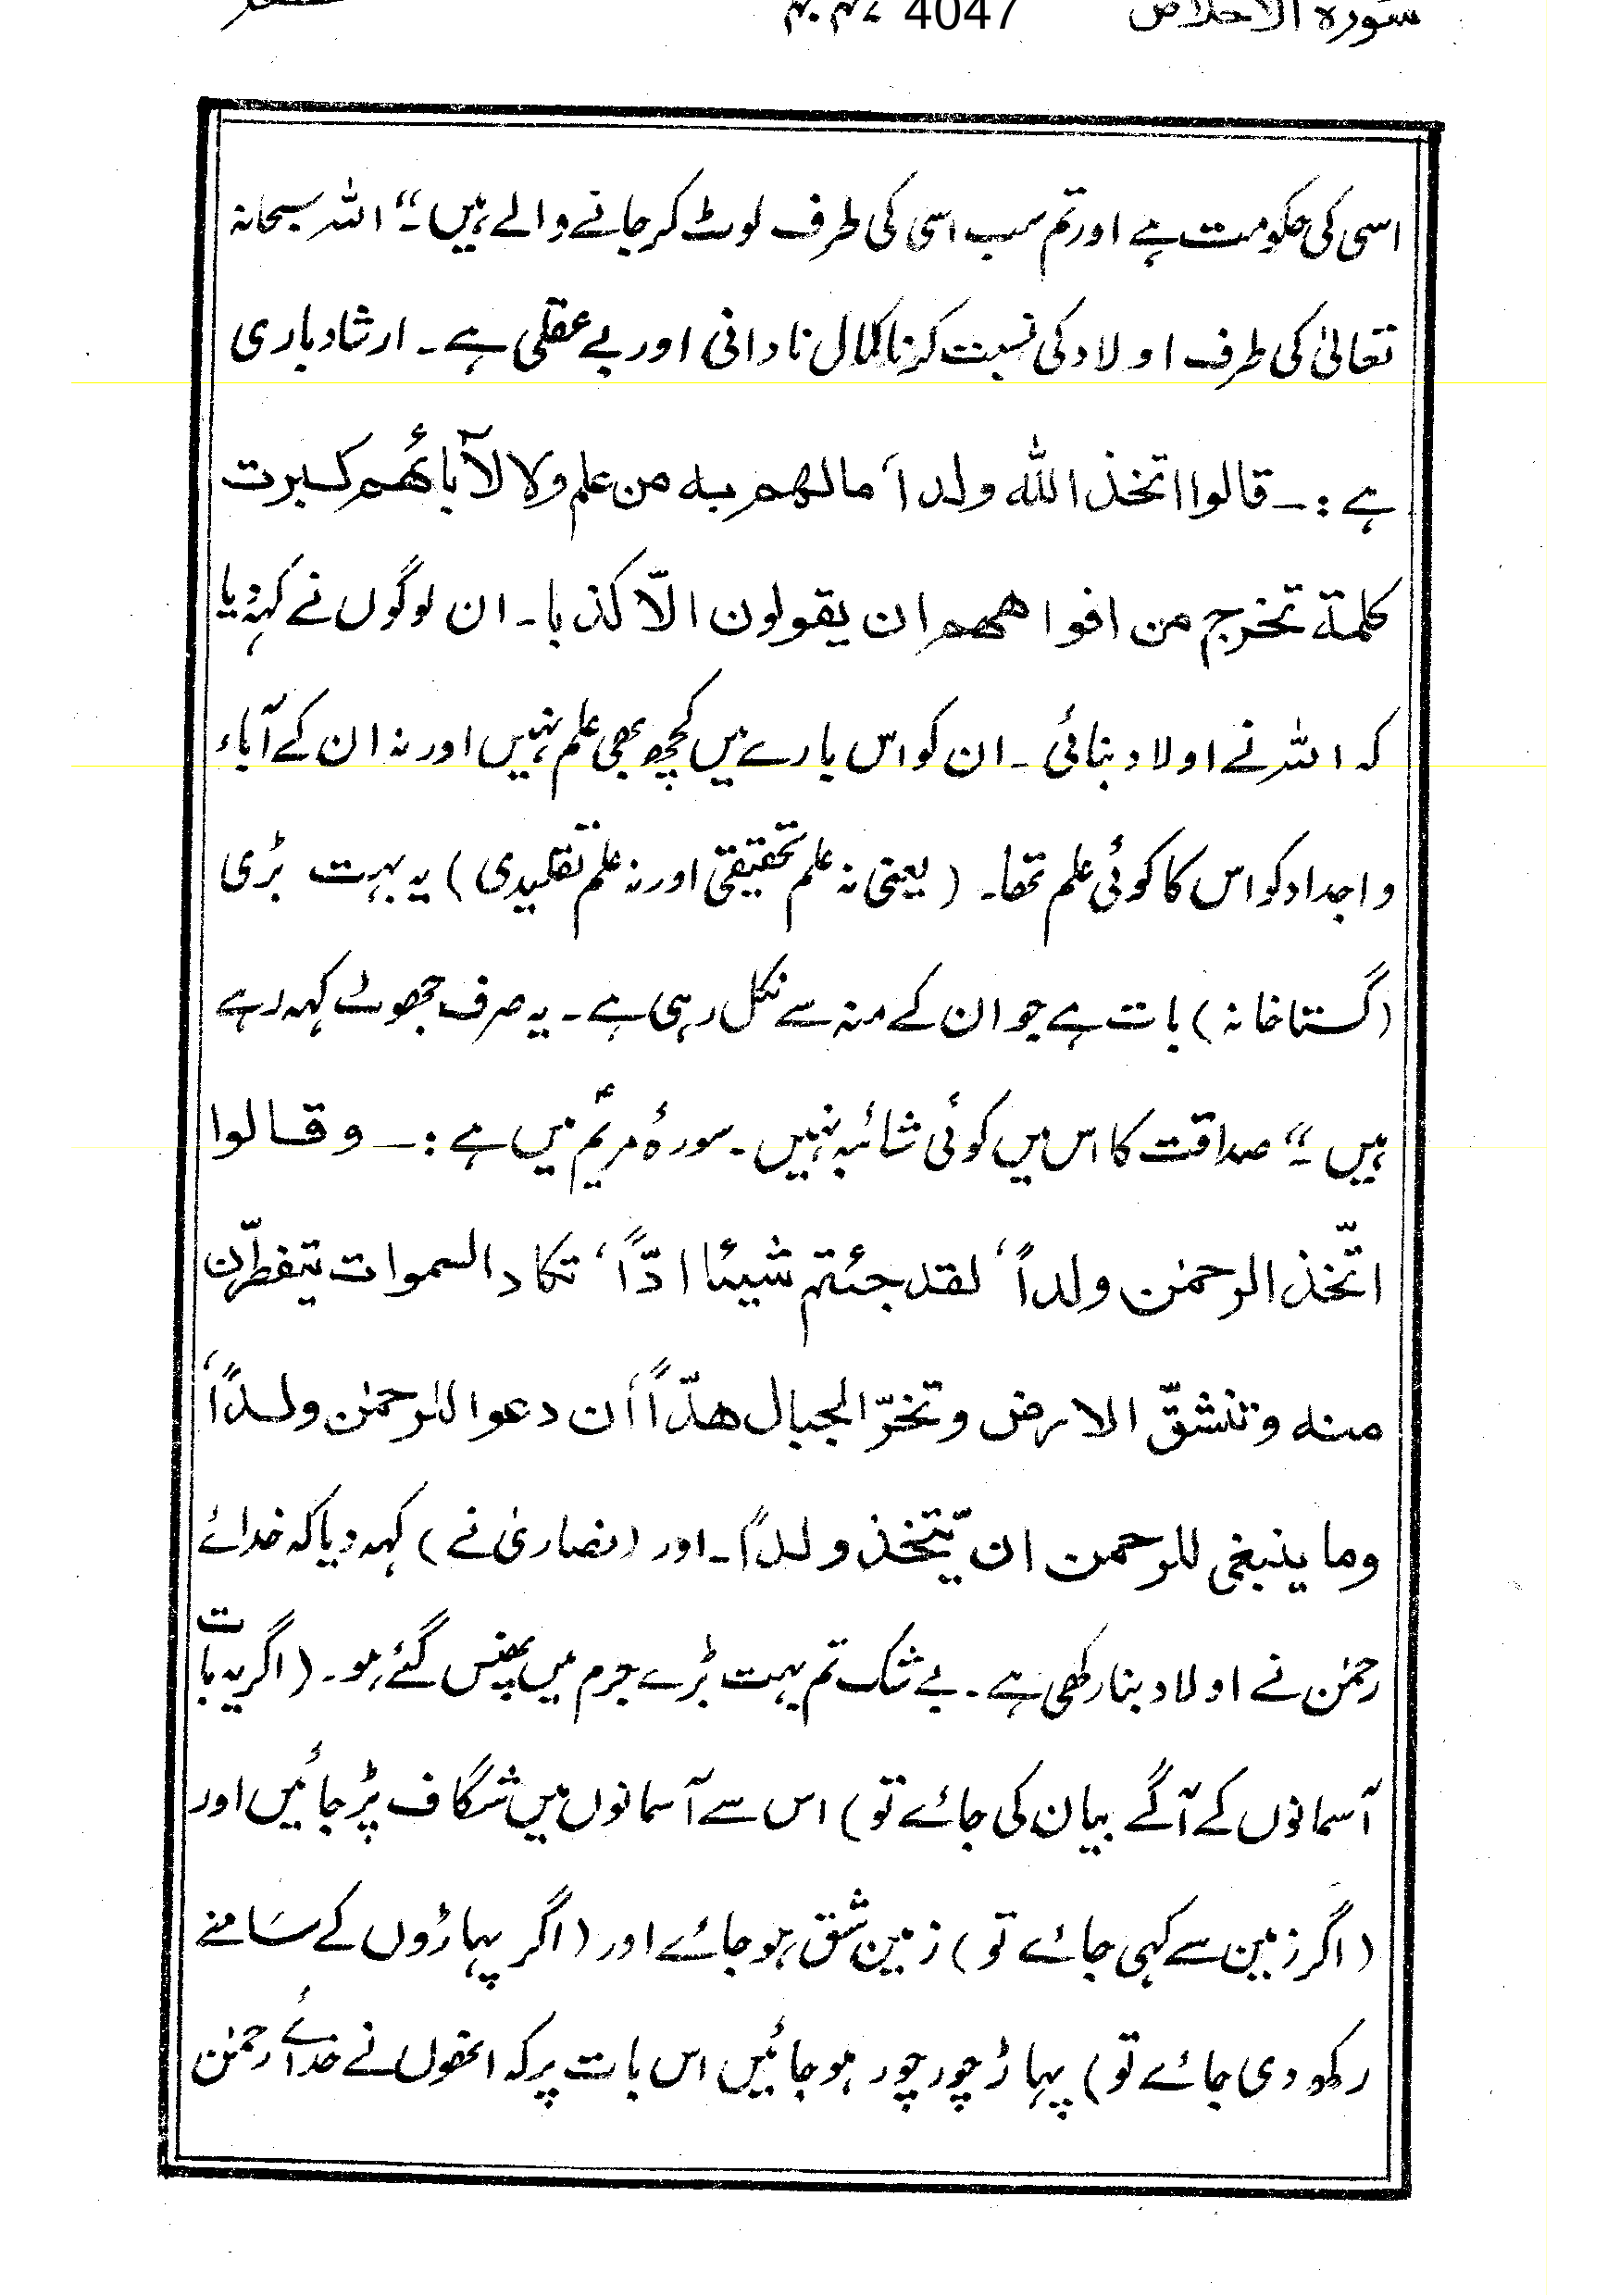 سورۃ الاخلاص 4047 ۴۰۴۷
اسی کی حکومت ہے اور تم سب اسی کی طرف لوٹ کر جانے والے ہیں۔“ اللہ سبحانہ
تعالیٰ کی طرف اولاد کی نسبت کرنا کمال نادانی اور بے عقلی ہے۔ ارشاد باری
ہے :۔ قالوا اتخذ اللہ ولداً مالہم بہ من علم ولا لآبائھم کبرت
کلمۃ تخرج من افواھھم ان یقولون الّا کذبا۔ ان لوگوں نے کہہ دیا
کہ اللہ نے اولاد بنائی ۔ ان کو اس بارے میں کچھ بھی علم نہیں اور نہ ان کے آباء
و اجداد کو اس کا کوئی علم تھا۔ (یعنی نہ علم تحقیقی اور نہ علم تقلیدی) یہ بہت بڑی
(گستاخانہ) بات ہے جو ان کے منہ سے نکل رہی ہے۔ یہ صرف جھوٹ کہہ رہے
ہیں۔“ صداقت کا اس میں کوئی شائبہ نہیں۔ سورۂ مریمؑ میں ہے :۔ وقالوا
اتّخذ الرحمٰن ولداً، لقد جئتم شیئا ادّاً، تکاد السموات یتفطّرن
منہ وتنشقّ الارض وتخرّ الجبال ھدّاً أن دعوا للرحمٰن ولدًا،
وما ینبغی للرحمن ان یّتخذ ولدًا۔ اور (نصاریٰ نے) کہہ دیا کہ خدائے
رحمٰن نے اولاد بنا رکھی ہے۔ بے شک تم بہت بڑے جرم میں پھنس گئے ہو۔ (اگر یہ بات
آسمانوں کے آگے بیان کی جائے تو) اس سے آسمانوں میں شگاف پڑ جائیں اور
(اگر زمین سے کہی جائے تو) زمین شق ہو جائے اور (اگر پہاڑوں کے سامنے
رکھ دی جائے تو) پہاڑ چور چور ہو جائیں اس بات پر کہ انھوں نے خدائے رحمٰن